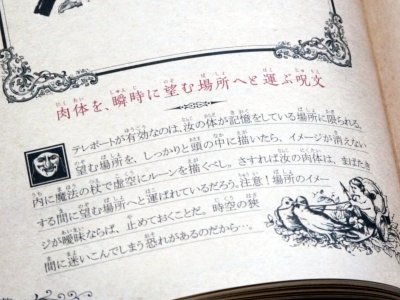 肉体を、瞬時に望む場所へと運ぶ呪文
テレポートが有効なのは、汝の体が記憶をしている場所に限られる。
望む場所を、しっかりと頭の中に描いたら、イメージが消えない
内に魔法の杖で虚空にルーンを描くべし。さすれば汝の肉体は、まばたき
する間に望む場所へと運ばれているだろう。注意!場所のイメー
ジが曖昧ならば、止めておくことだ。時空の狭
間に迷いこんでしまう恐れがあるのだから…。